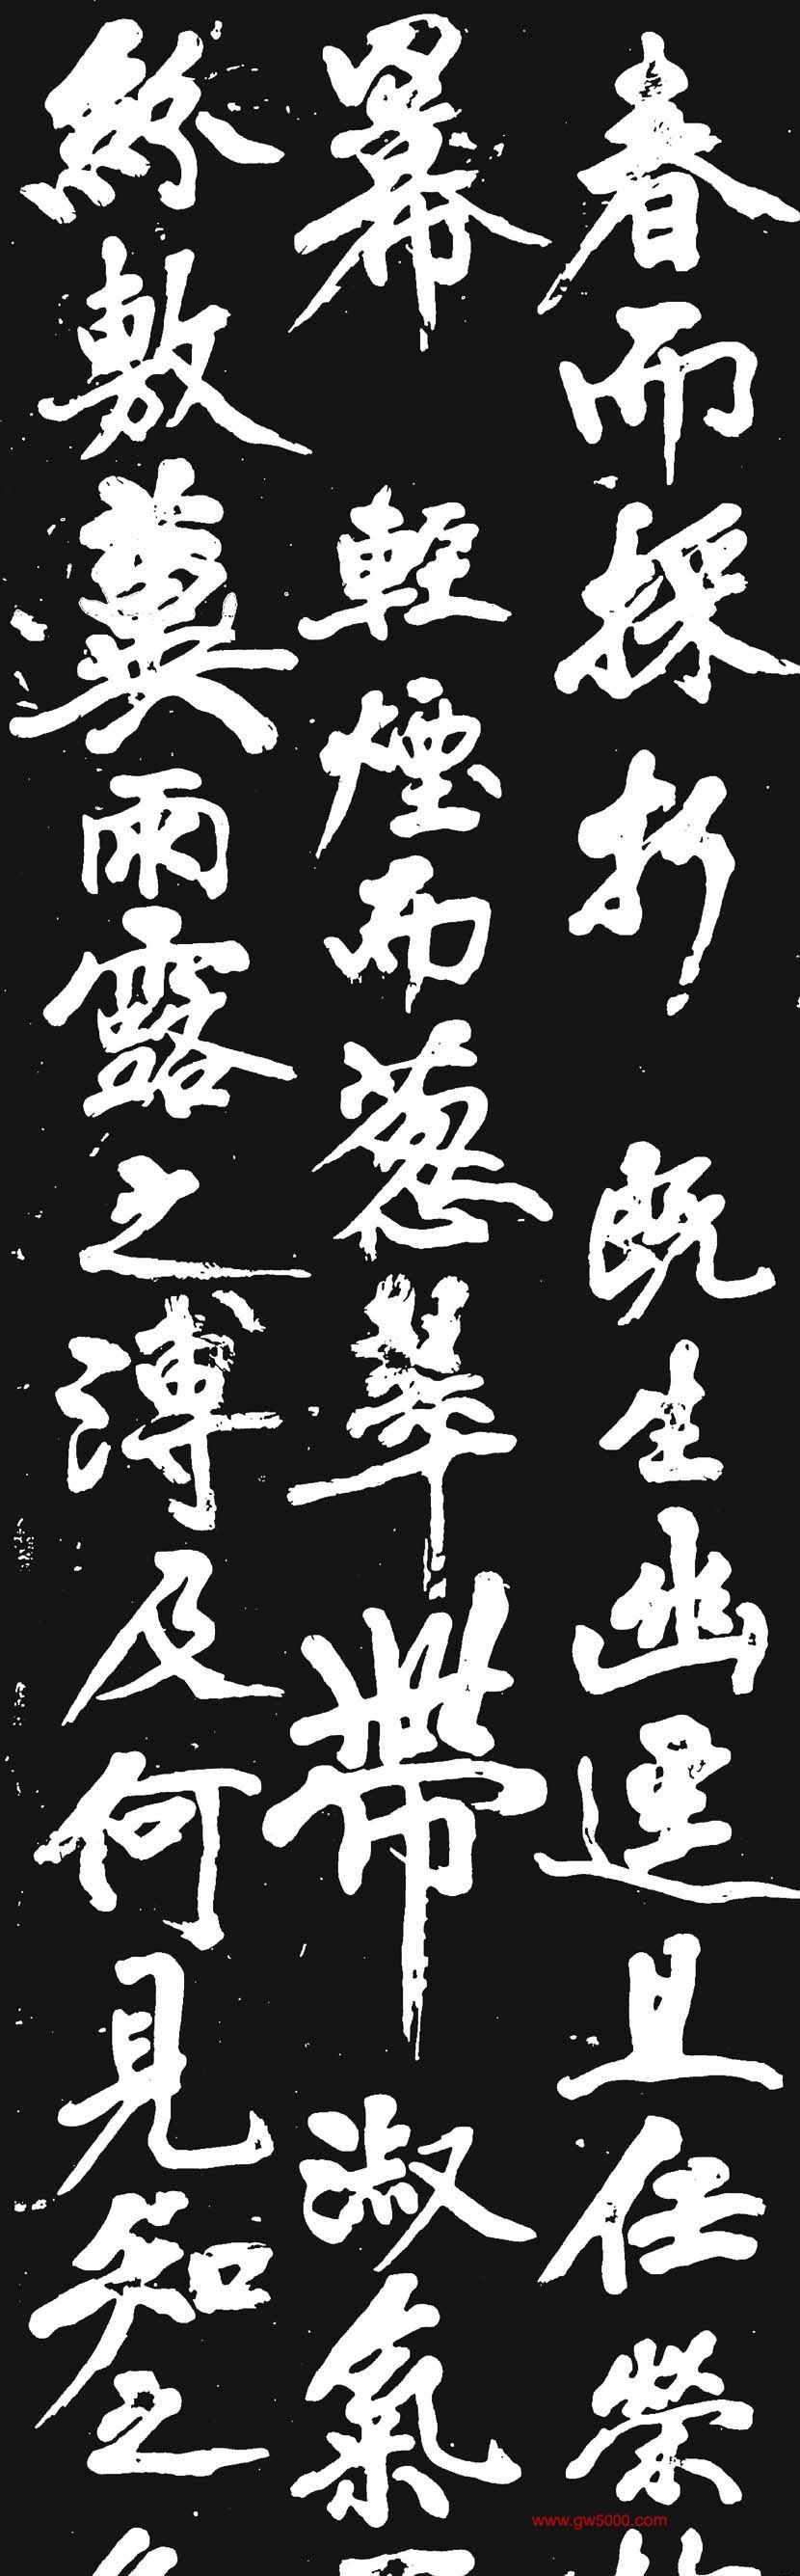 春而採折既生幽逕且任榮
冪輕煙而葱翠帶淑氣
紛敷冀雨露之溥及何見知之
www.gw5000.com